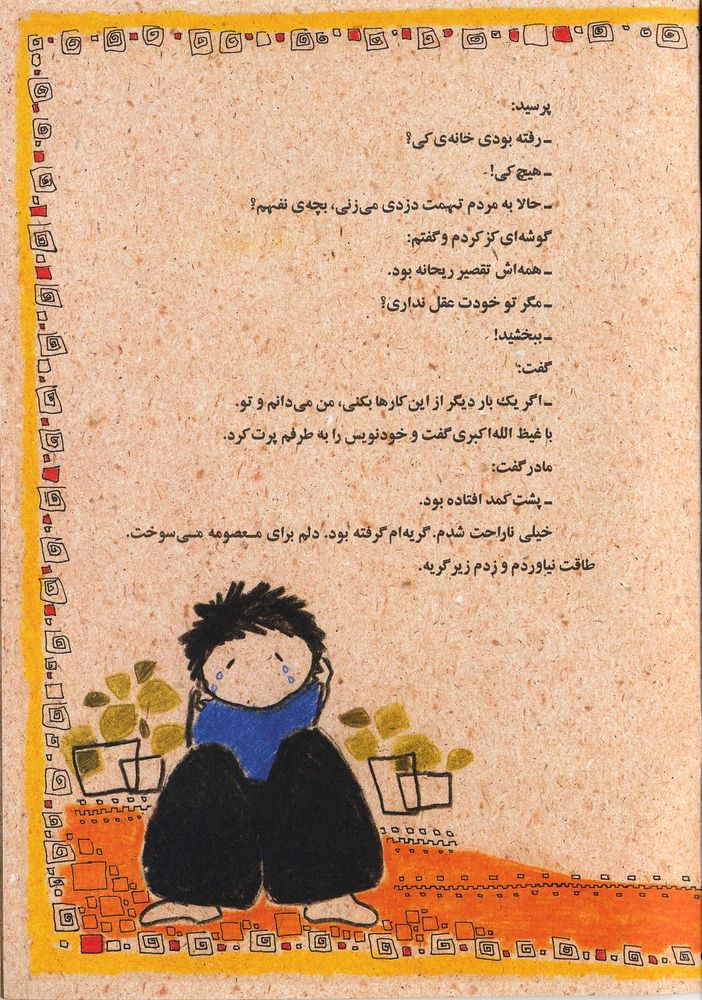 پرسید:
ـ رفته بودی خانه‌ی کی؟
ـ هیچ کی!
ـ حالا به مردم تهمت دزدی می‌زنی، بچه‌ی نفهم؟
گوشه‌ای کز کردم و گفتم:
ـ همه‌اش تقصیر ریحانه بود.
ـ مگر تو خودت عقل نداری؟
ـ ببخشید!
گفت:
ـ اگر یک بار دیگر از این کارها بکنی، من می‌دانم و تو.
با غیظ الله‌اکبری گفت و خودنویس را به طرفم پرت کرد.
مادر گفت:
ـ پشت کمد افتاده بود.
خیلی ناراحت شدم. گریه‌ام گرفته بود. دلم برای معصومه می‌سوخت.
طاقت نیاوردم و زدم زیر گریه.